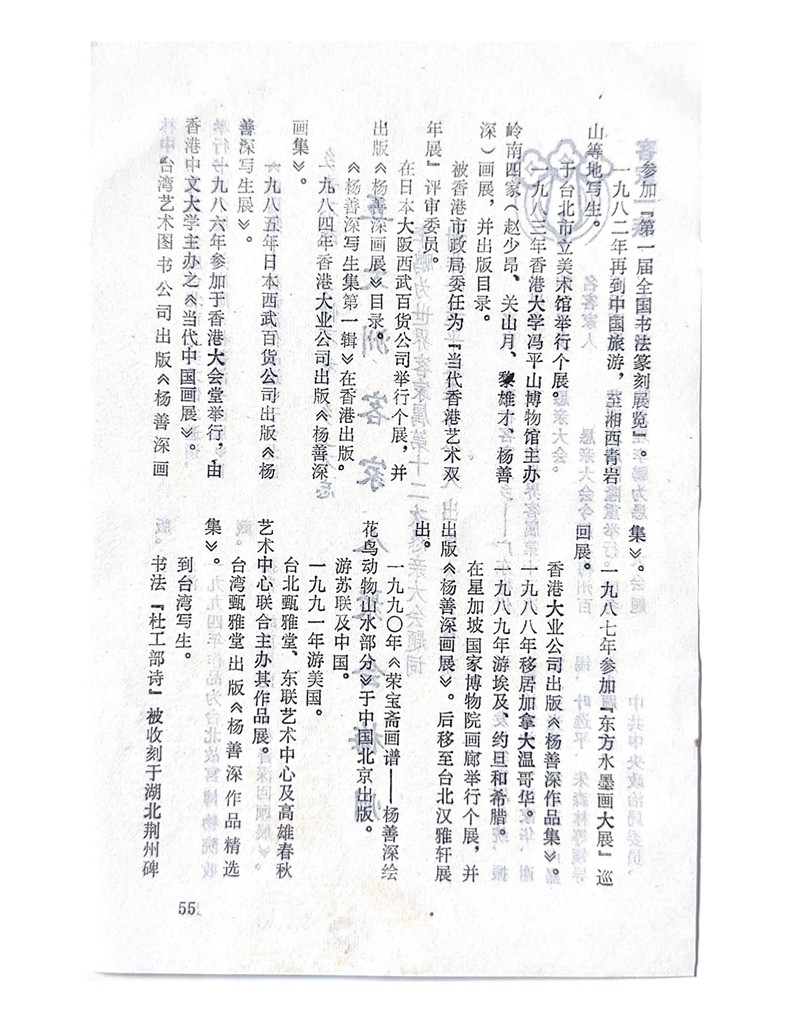 参加『第一届全国书法篆刻展览』。
一九八二年再到中国旅游，至湘西青岩
山等地写生。
于台北市立美术馆举行个展。
一九八三年香港大学冯平山博物馆主办
岭南四家（赵少昂、关山月、黎雄才、杨善
深）画展，并出版目录。
被香港市政局委任为『当代香港艺术双
年展』评审委员。
在日本大阪西武百货公司举行个展，并
出版《杨善深画展》目录。
《杨善深写生集第一辑》在香港出版。
一九八四年香港大业公司出版《杨善深
画集》。
一九八五年日本西武百货公司出版《杨
善深写生展》。
一九八六年参加于香港大会堂举行，由
香港中文大学主办之《当代中国画展》。
台湾艺术图书公司出版《杨善深画
集》。
一九八七年参加『东方水墨画大展』巡
回展。
香港大业公司出版《杨善深作品集》。
一九八八年移居加拿大温哥华。
一九八九年游埃及、约旦和希腊。
在星加坡国家博物院画廊举行个展，并
出版《杨善深画展》。后移至台北汉雅轩展
出。
一九九〇年《荣宝斋画谱——杨善深绘
花鸟动物山水部分》于中国北京出版。
游苏联及中国。
一九九一年游美国。
台北甄雅堂、东联艺术中心及高雄春秋
艺术中心联合主办其作品展。
台湾甄雅堂出版《杨善深作品精选
集》。
到台湾写生。
书法『杜工部诗』被收刻于湖北荆州碑
55